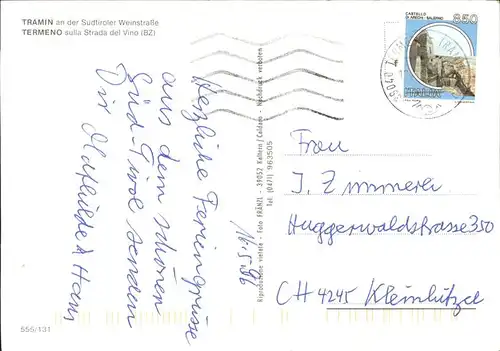 TRAMIN an der Südtiroler Weinstraße
TERMENO sulla Strada del Vino (BZ)
Herzliche Feriengrüsse
aus dem schönen
Süd-Tirol senden
Dir Mathilde & Hans
16.5.96
Riproduzione vietata - Foto FRÄNZL - 39052 Kaltern / Caldaro - Nachdruck verboten
Tel. (0471) 963505
CASTELLO
DI ARECHI - SALERNO
850
ITALIA
Frau
I. Zimmerer
Huggerwaldstrasse 350
CH 4245 / Kleinlützel
555/131